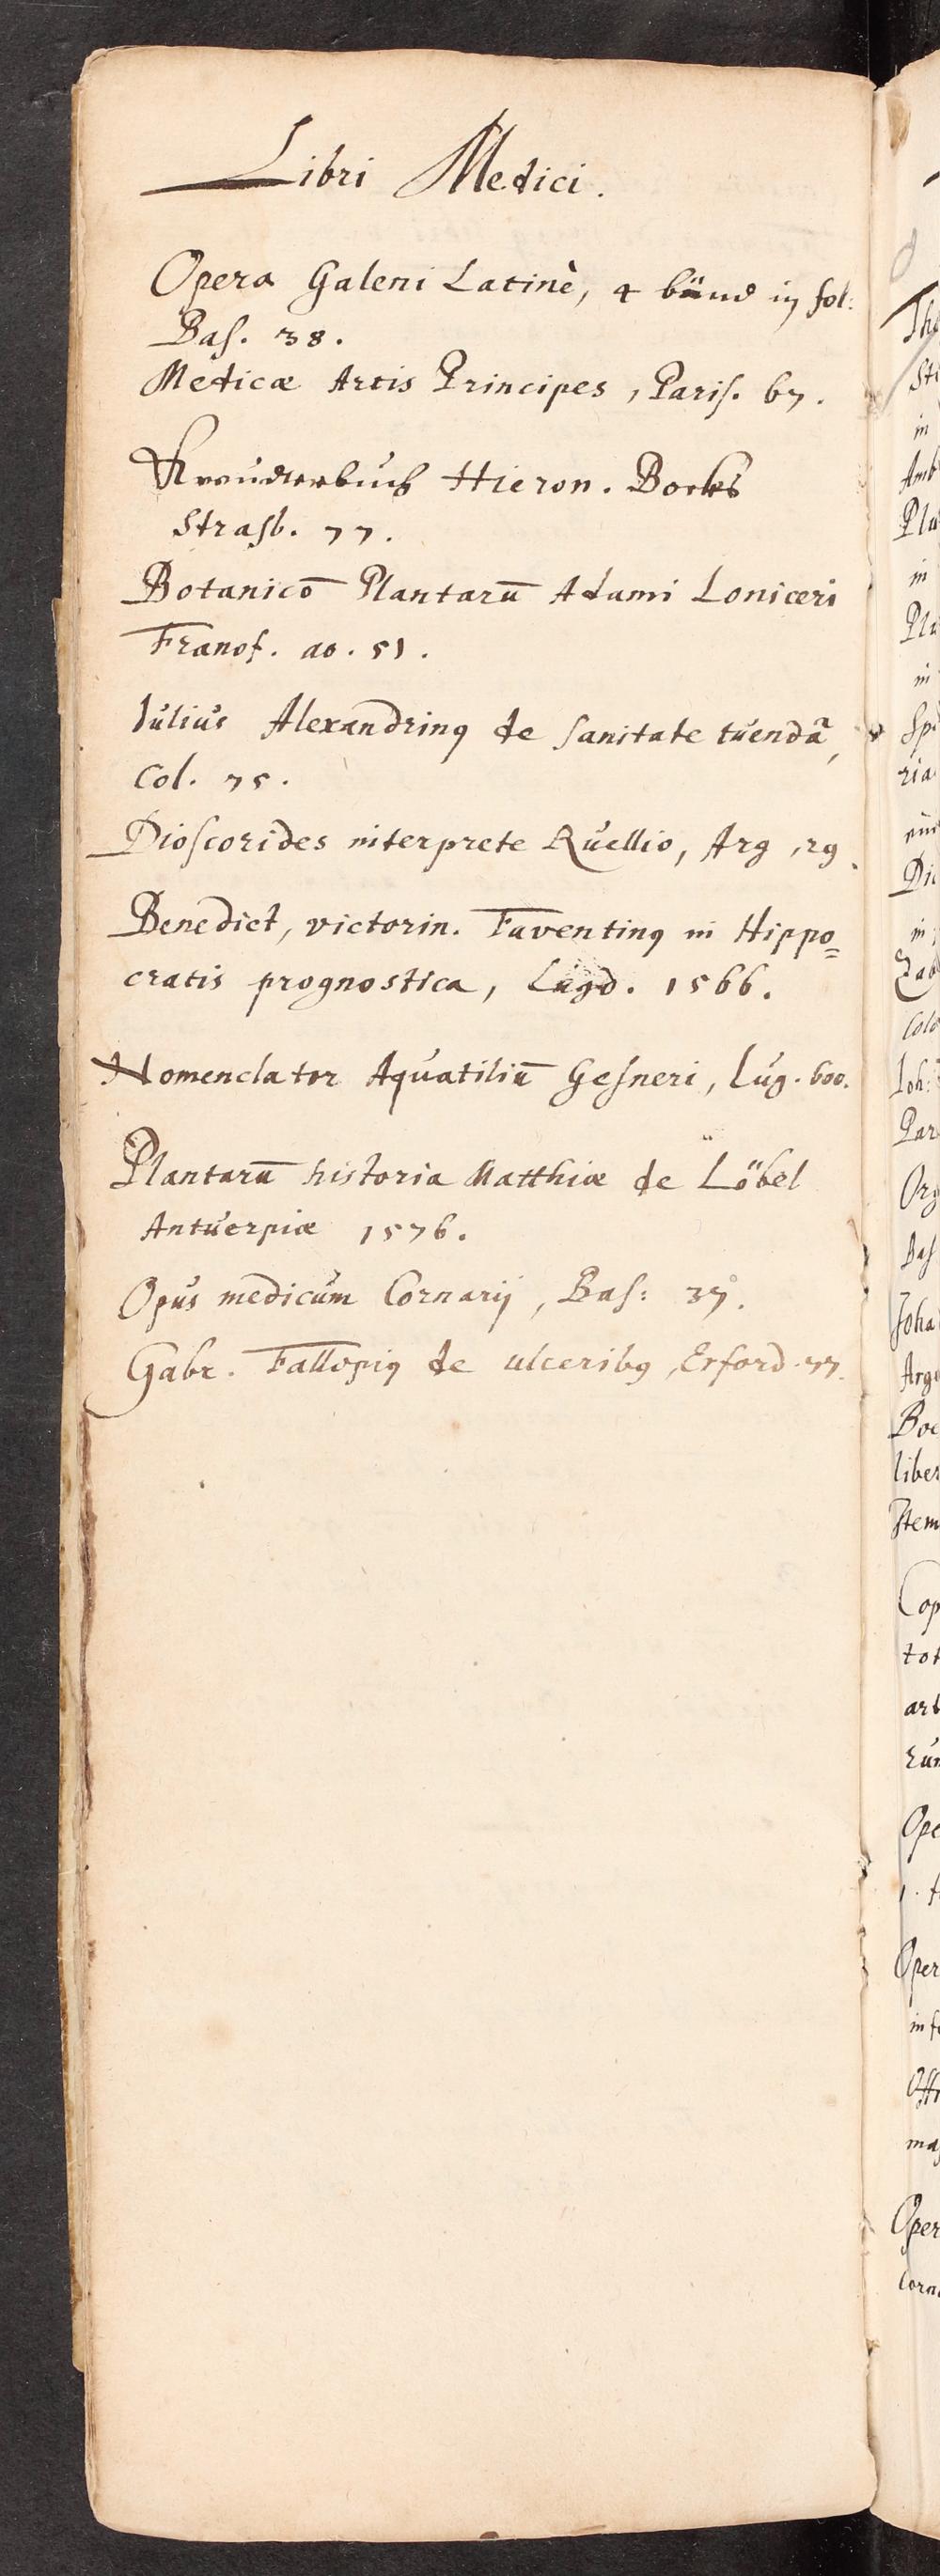 Libri Medici.
Opera Galeni Latinè, 4 bünd in fol:
Bas. 38.
Medicæ Artis Principes, Paris. 67.
Kreuterbuch Hieron. Bocks
Strasb. 77.
Botanicō Plantarū Adami Loniceri
Francf. ao. 51.
Iulius Alexandrinꝰ de sanitate tuendâ,
Col. 75.
Dioscorides interprete Ruellio, Arg. 29.
Benedict, victorin. Faventinꝰ in Hippo=
cratis prognostica, Lugd. 1566.
Nomenclator Aquatiliū Gesneri, Lug. 600.
Plantarū historia Matthiæ de Löbel
Antuerpiæ 1576.
Opus medicum Cornarij, Bas: 37.
Gabr. Fallopiꝰ de ulceribꝰ, Erford. 77.